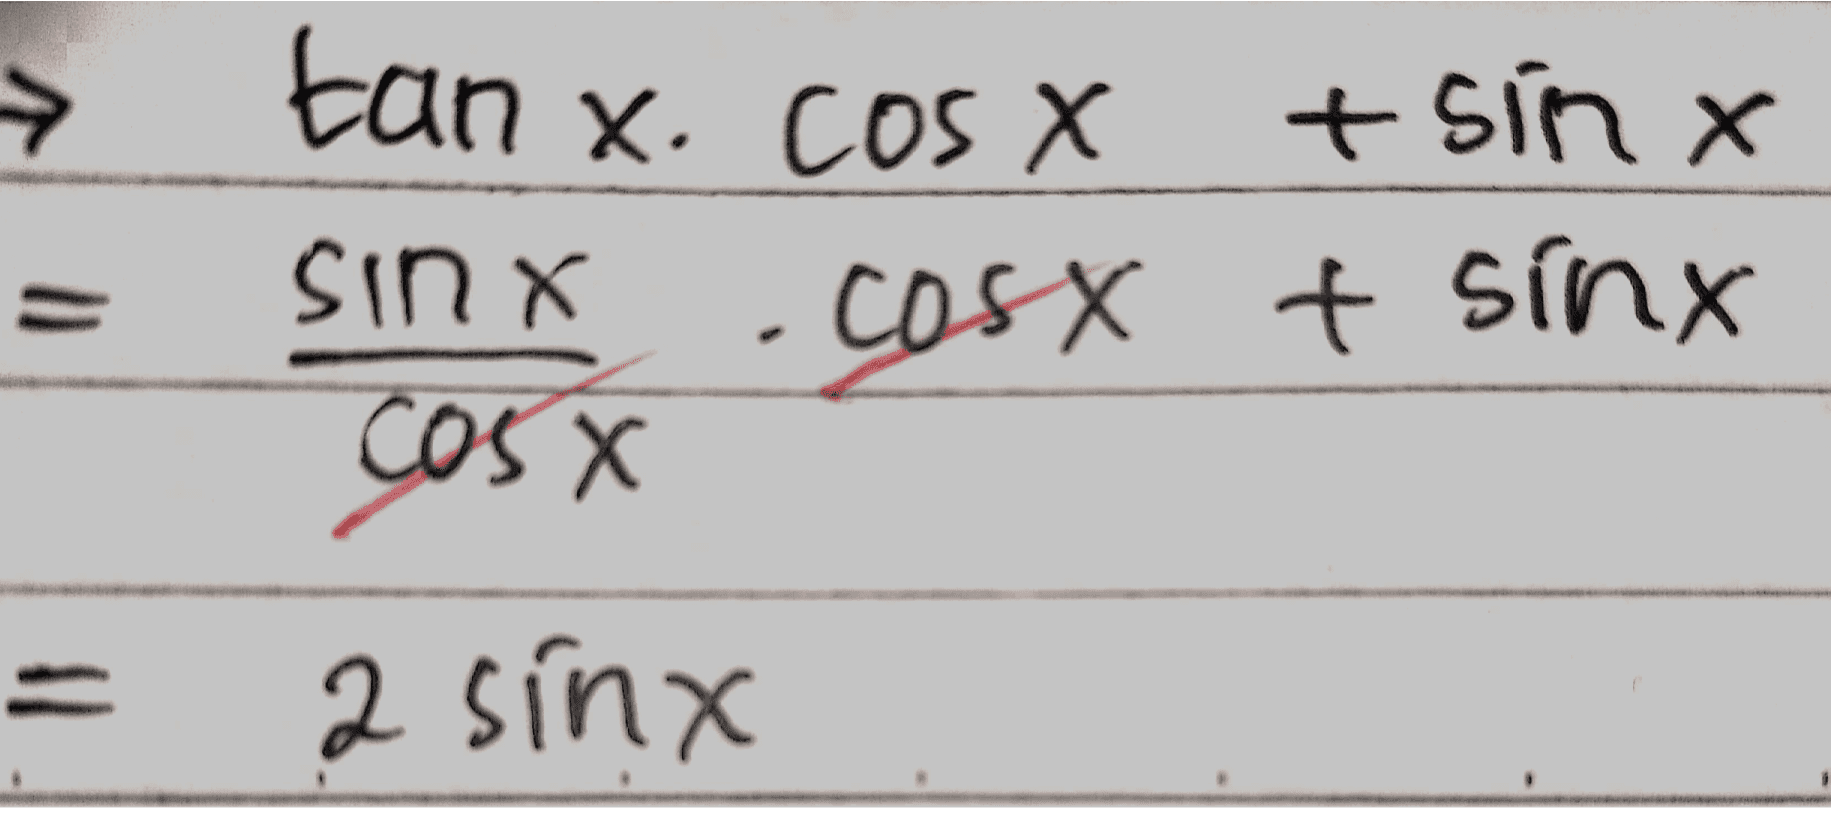 → tan x . cos x + sin x
= sin x / cos x . cos x + sin x
= 2 sin x